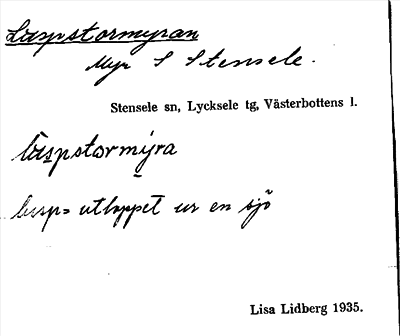 Luspstormyran
Myr S Stensele.
Stensele sn, Lycksele tg, Västerbottens l.
luspstormýra
lusp= utloppet ur en sjö
Lisa Lidberg 1935.